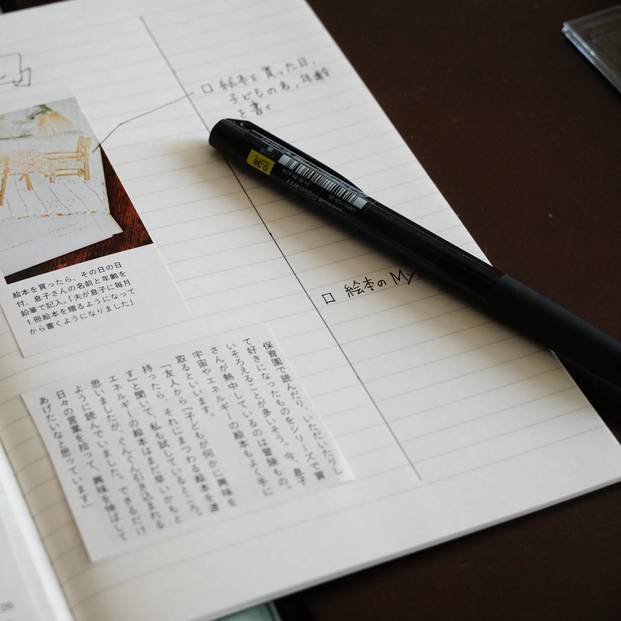 □ 絵本を買った日、
子どもの名、年齢
を書く
0.38
絵本を買ったら、その日の日
付、息子さんの名前と年齢を
鉛筆で記入。「夫が息子に毎月
1冊絵本を贈るようになって
から書くようになりました」
□ 絵本の My
保育園で読んだり、いただいたりし
て好きになったものをシリーズで買
いそろえることが多いそう。今、息子
さんが熱中しているのは冒険もの。
宇宙やエネルギーの絵本もよく手に
取るといいます。
「友人から『子どもが何かに興味を
持ったら、それにまつわる絵本を選
す』と聞いて、私も試しているところ。
エネルギーの絵本はまだ早いかもと
思いましたが、ぐんぐん引き込まれる
ように読んでいました。できるだけ
日々の言葉を拾って、興味を伸ばして
あげたいなと思っています」